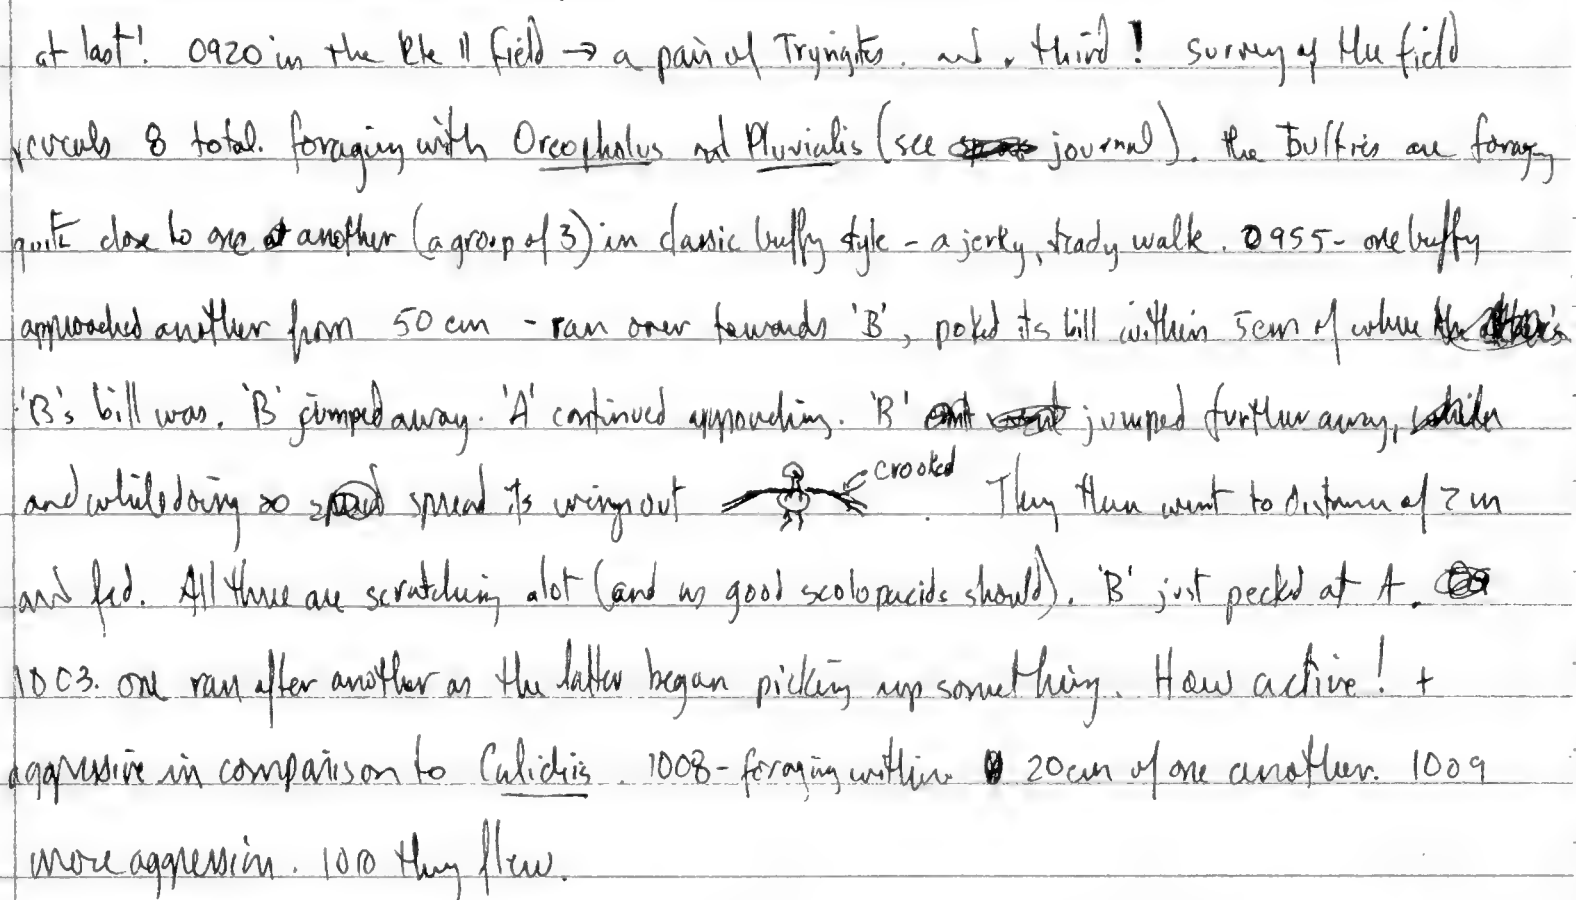 at last! 0920 in the Rte 11 field → a pair of Tryngites. and a third! survey of the field
reveals 8 total. foraging with Oreopholus and Pluvialis (see journal). the Buffies are foraging
quite close to one another (a group of 3) in classic buffy style - a jerky, steady walk. 0955 - one buffy
approached another from 50 cm - ran over towards 'B', poked its bill within 5cm of where
'B's bill was. 'B' jumped away. 'A' continued approaching. 'B' jumped further away,
and while doing so spread its wings out crooked . They then went to distance of 2 m
and fed. All three are scratching alot (and as good scolopacids should). 'B' just pecked at A.
1003. one ran after another as the latter began picking up something. How active! +
aggressive in comparison to Calidris. 1008 - foraging within 20cm of one another. 1009
more aggression. 1010 they flew.